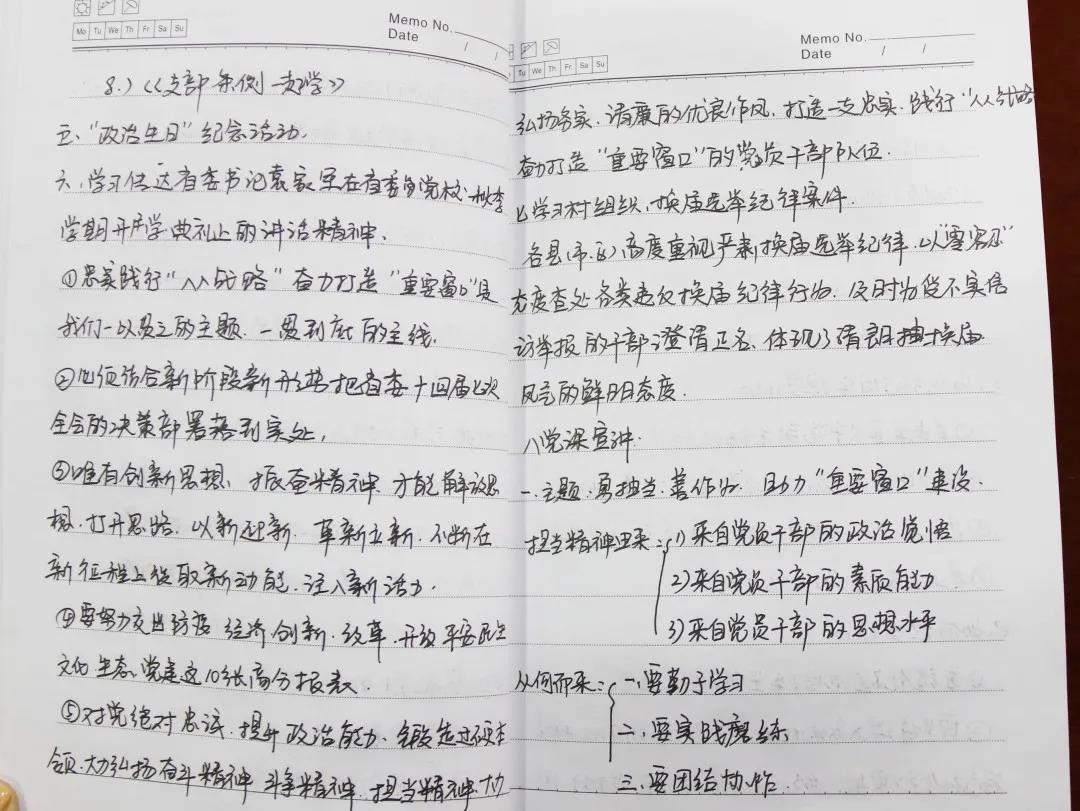 Memo No.
Date / /
Mo Tu We Th Fr Sa Su
8.)《支部条例一起学》
五、"政治生日"纪念活动.
六、学习传达省委书记袁家军在省委党校秋季
学期开学典礼上的讲话精神.
①忠实践行"八八战略"奋力打造"重要窗口"是
我们一以贯之的主题.一贯到底的主线.
②必须结合新阶段新形势把省委十四届七次
全会的决策部署落到实处,
③唯有创新思想、振奋精神.才能解放思
想.打开思路.以新迎新.革新立新.不断在
新征程上获取新动能.注入新活力.
④要努力交出防疫 经济 创新.改革.开放 平安 民生
文化 生态.党建这10张高分报表.
⑤对党绝对忠诚.提升政治能力.锻造过硬本
领.大力弘扬奋斗精神 斗争精神.担当精神.大力
Memo No.
Date / /
Tu We Th Fr Sa Su
弘扬务实.清廉的优良作风.打造一支忠实.践行"八八战略
奋力打造"重要窗口"的党员干部队伍.
七学习村组织.换届选举纪律案件.
各县(市.区)高度重视严肃换届选举纪律.以"零容忍"
态度查处各类违反换届纪律行为.及时为受不实信
访举报的干部澄清正名.体现了清朗换届
风气的鲜明态度.
八党课宣讲.
一.主题.勇担当.善作为.助力"重要窗口"建设.
担当精神由来: 1)来自党员干部的政治觉悟
2)来自党员干部的素质能力
3)来自党员干部的思想水平
从何而来: 一.要勤于学习
二.要实践磨练
三.要团结协作.